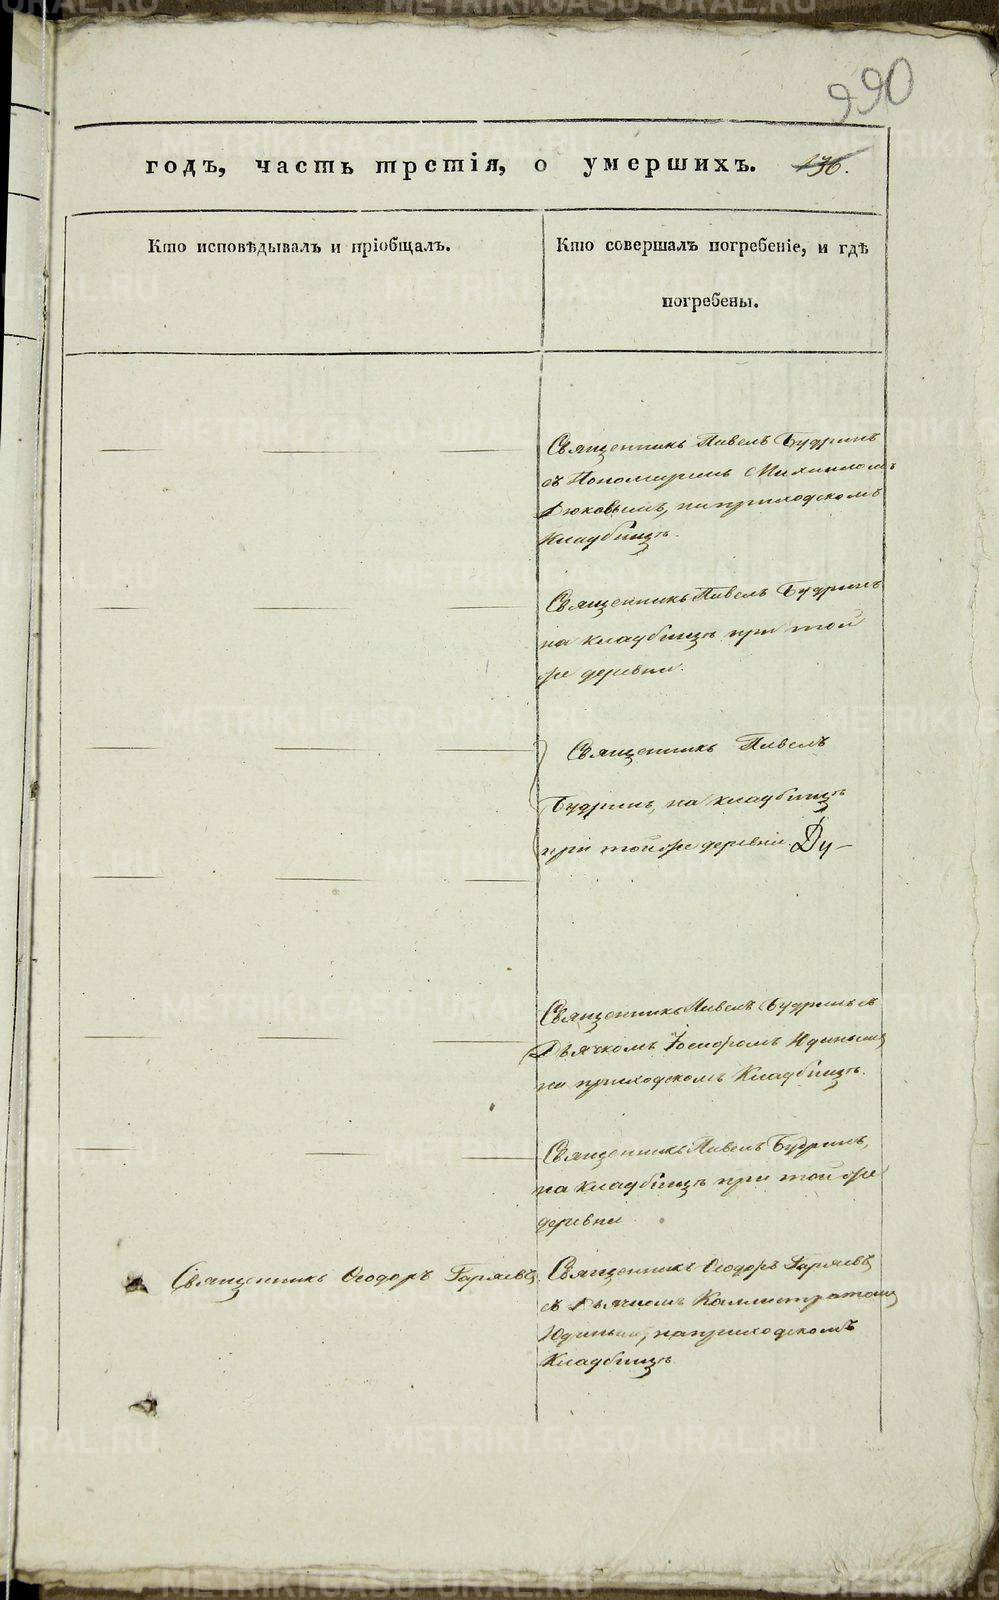 990
годъ, часть третія, о умершихъ. 136.
Кто исповѣдывалъ и пріобщалъ.
Кто совершалъ погребеніе, и гдѣ
погребены.
Священникъ Павелъ Будринъ
съ Пономаремъ Михаиломъ
Дюковымъ, на приходскомъ
Кладбищѣ.
Священникъ Павелъ Будринъ
на кладбищѣ при той
же деревни.
Священникъ Павелъ
Будринъ, на кладбищѣ
при той же деревни. Ду-
Священникъ Павелъ Будринъ съ
Дьячкомъ Іосифомъ Юдинымъ
на приходскомъ Кладбищѣ.
Священникъ Павелъ Будринъ,
на кладбищѣ при той же
деревни
Священникъ Ѳеодоръ Гаряевъ.
Священникъ Ѳеодоръ Гаряевъ
съ Дьячкомъ Каллистратомъ
Юдинымъ, на приходскомъ
Кладбищѣ
METRIKI.GASO-URAL.RU